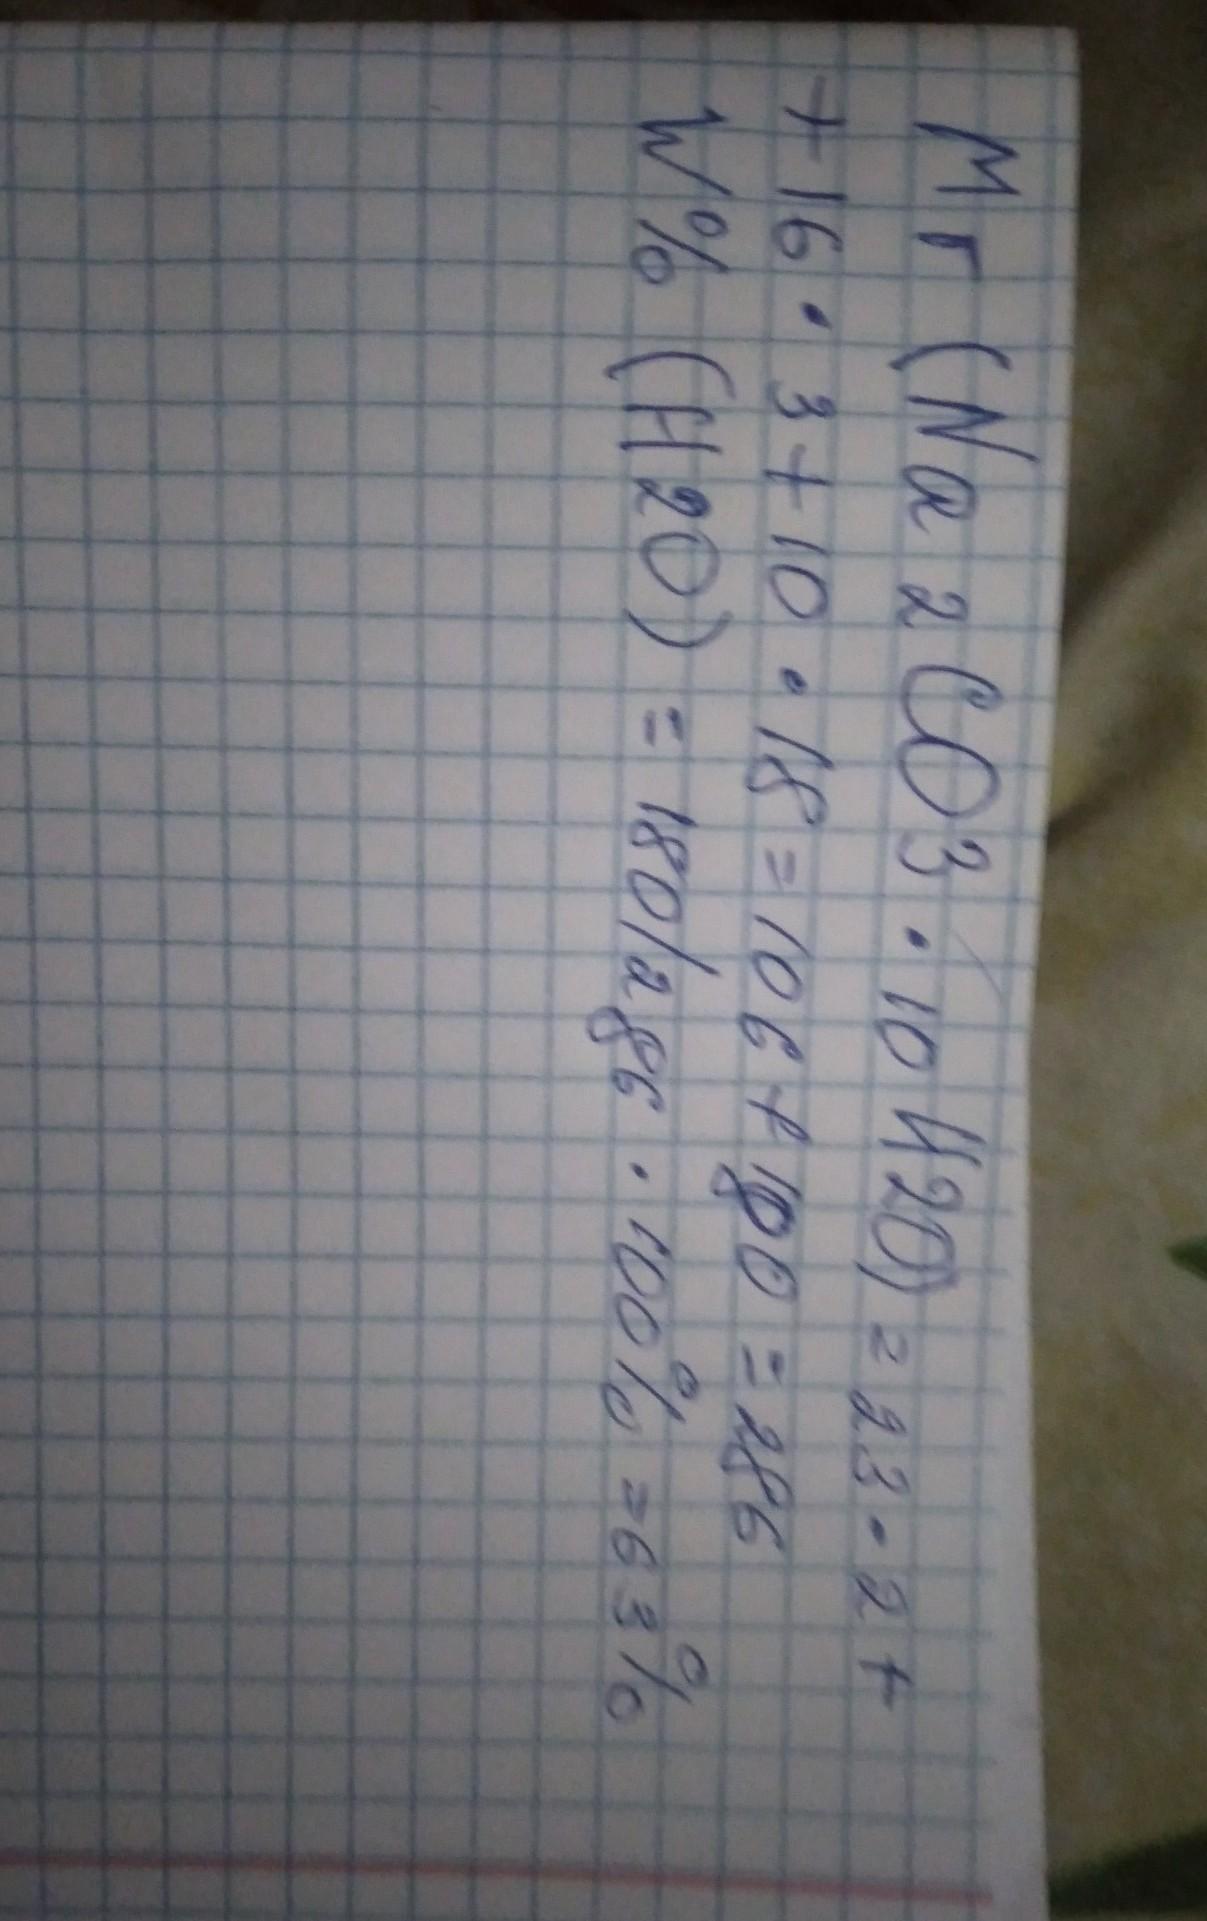 Mr (Na2CO3 · 10H2O) = 23 · 2 +
+ 16 · 3 + 10 · 18 = 106 + 180 = 286
W% (H2O) = 180/286 · 100% = 63%